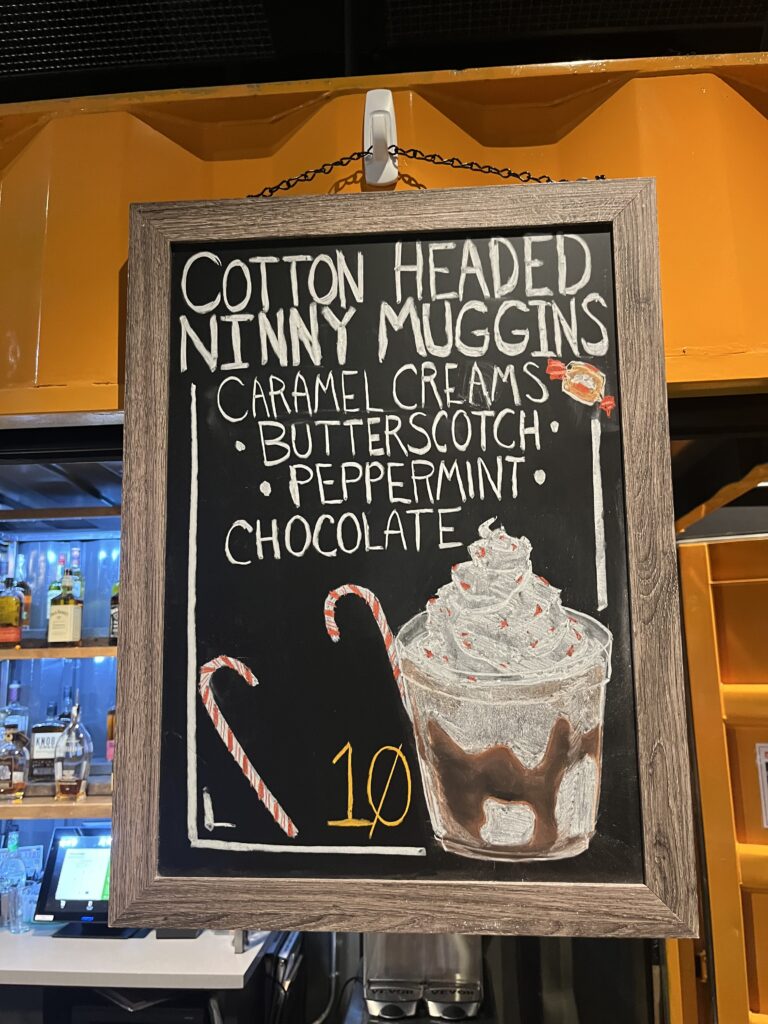 COTTON HEADED
NINNY MUGGINS
CARAMEL CREAMS
• BUTTERSCOTCH •
• PEPPERMINT •
CHOCOLATE
10
KNOB
VEVOR VEVOR